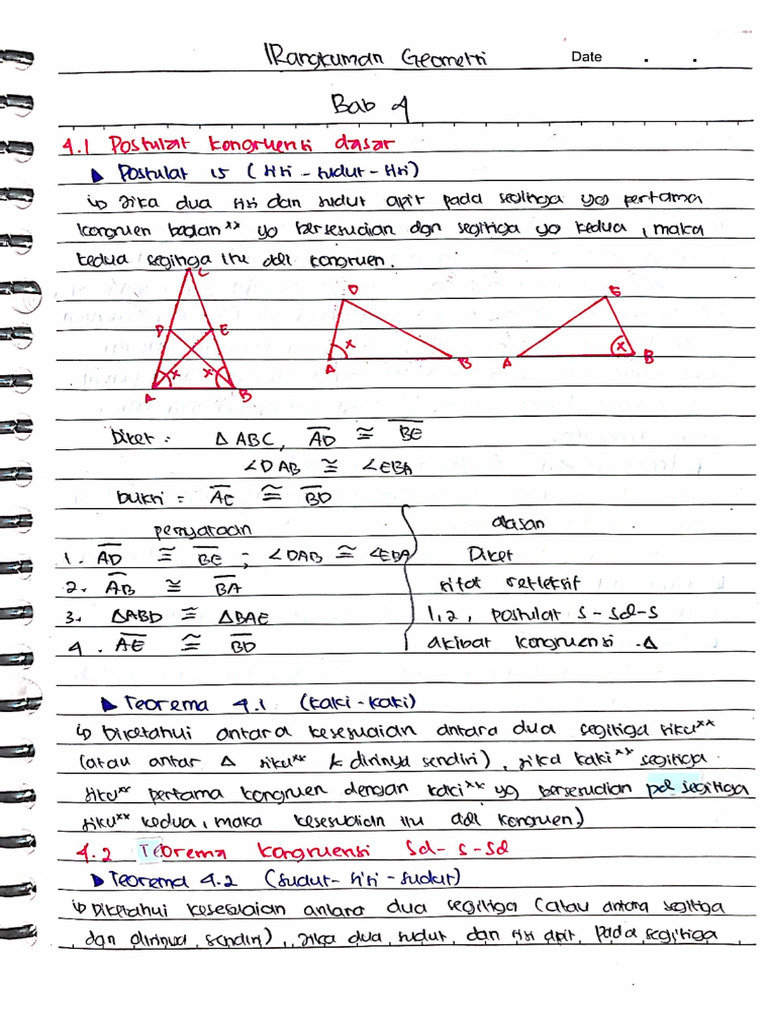 Rangkuman Geometri
Date . .
Bab 4
4.1 Postulat kongruensi dasar
▶ Postulat 15 (sisi - sudut - sisi)
↳ Jika dua sisi dan sudut apit pada segitiga yg pertama
kongruen bagian** yg bersesuaian dgn segitiga yg kedua, maka
kedua segitiga itu adl kongruen.
C
D E
x x
A B
D
x
A B
E
x
A B
Diket : △ABC, AD ≅ BE
∠DAB ≅ ∠EBA
bukti = AE ≅ BD
pernyataan alasan
1. AD ≅ BE ; ∠DAB ≅ ∠EBA Diket
2. AB ≅ BA sifat refleksif
3. △ABD ≅ △BAE 1,2, postulat s-sd-s
4. AE ≅ BD akibat kongruensi △
▶ Teorema 4.1 (kaki-kaki)
↳ Diketahui antara kesesuaian antara dua segitiga siku**
(atau antar △ siku** & dirinya sendiri), jika kaki** segitiga
siku** pertama kongruen dengan kaki** yg bersesuaian pd segitiga
siku** kedua, maka kesesuaian itu adl kongruen)
4.2 Teorema kongruensi sd-s-sd
▶ Teorema 4.2 (sudut-sisi-sudut)
↳ Diketahui kesesuaian antara dua segitiga (atau antara segitiga
dgn dirinya sendiri), jika dua sudut dan sisi apit pada segitiga